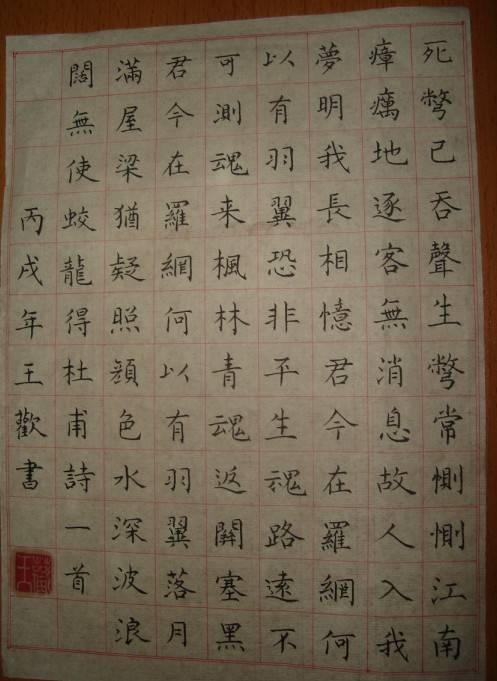 死彆已吞聲生彆常惻惻江南
瘴癘地逐客無消息故人入我
夢明我長相憶君今在羅網何
以有羽翼恐非平生魂路遠不
可測魂来楓林青魂返關塞黑
君今在羅網何以有羽翼落月
滿屋梁猶疑照顔色水深波浪
闊無使蛟龍得杜甫詩一首
丙戌年王歡書